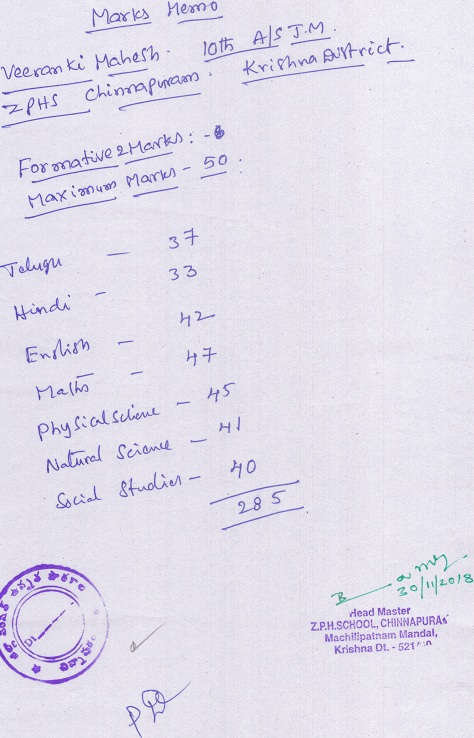 Marks Memo
Veeranki Mahesh. 10th A/S T.M.
ZPHS Chinnapuram. Krishna District.
Formative 2 Marks: -
Maximum Marks - 50.
Telugu — 37
Hindi - 33
English - 42
Maths - 47
Physical Science - 45
Natural Science - 41
Social Studies - 40
285
30/11/2018
Head Master
Z.P.H.SCHOOL, CHINNAPURAM
Machilipatnam Mandal,
Krishna Dt. - 521